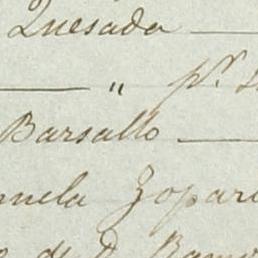 Quesada
" pr. s
Barsallo
nuela Zopar
de D. Ramo